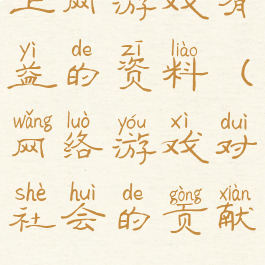 上网游戏有
yì de zī liào
益的资料（
wǎng luò yóu xì duì
网络游戏对
shè huì de gòng xiàn
社会的贡献